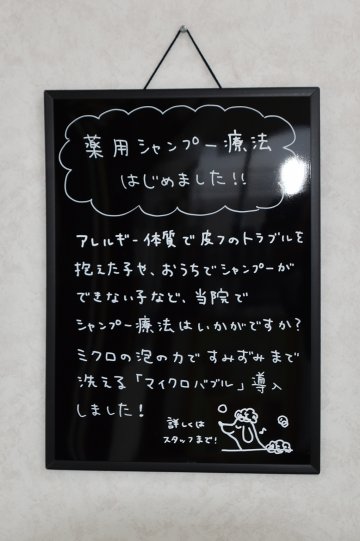 薬用シャンプー療法
はじめました!!
アレルギー体質で皮フのトラブルを
抱えた子や、おうちでシャンプーが
できない子など、当院で
シャンプー療法はいかがですか?
ミクロの泡の力ですみずみまで
洗える「マイクロバブル」導入
しました!
詳しくは
スタッフまで!